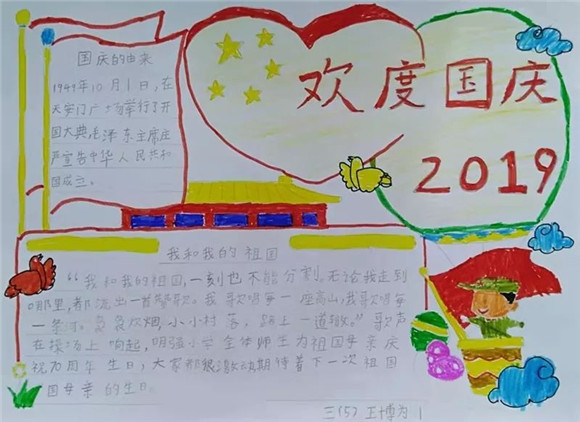 国庆的由来
1949年10月1日,在
天安门广场举行了开
国大典毛泽东主席庄
严宣告中华人民共和
国成立。
欢度国庆
2019
我和我的祖国
“我和我的祖国,一刻也不能分割。无论我走到
哪里,都流出一首赞歌。我歌唱每一座高山,我歌唱每
一条河。袅袅炊烟,小小村落,路上一道辙。”歌声
在操场上响起,明强小学全体师生为祖国母亲庆
祝70周年生日,大家都很激动期待着下一次祖国
国母亲的生日。
三(5)王博为